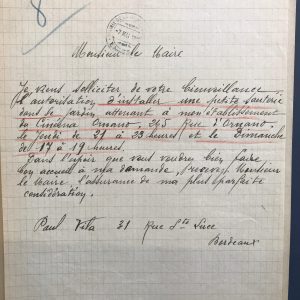 8
Monsieur le Maire
Je viens solliciter de votre bienveillance
l'autorisation d'installer une petite sauterie
dans le jardin attenant à mon établissement
du Cinéma Ornano, 245 Rue d'Ornano
le Jeudi de 21 à 23 heures et le Dimanche
de 17 à 19 heures.
Dans l'espoir que vous voudrez bien faire
bon accueil à ma demande, recevez Monsieur
le Maire l'assurance de ma plus parfaite
considération.
Paul Vila 31 Rue Ste Luce
Bordeaux